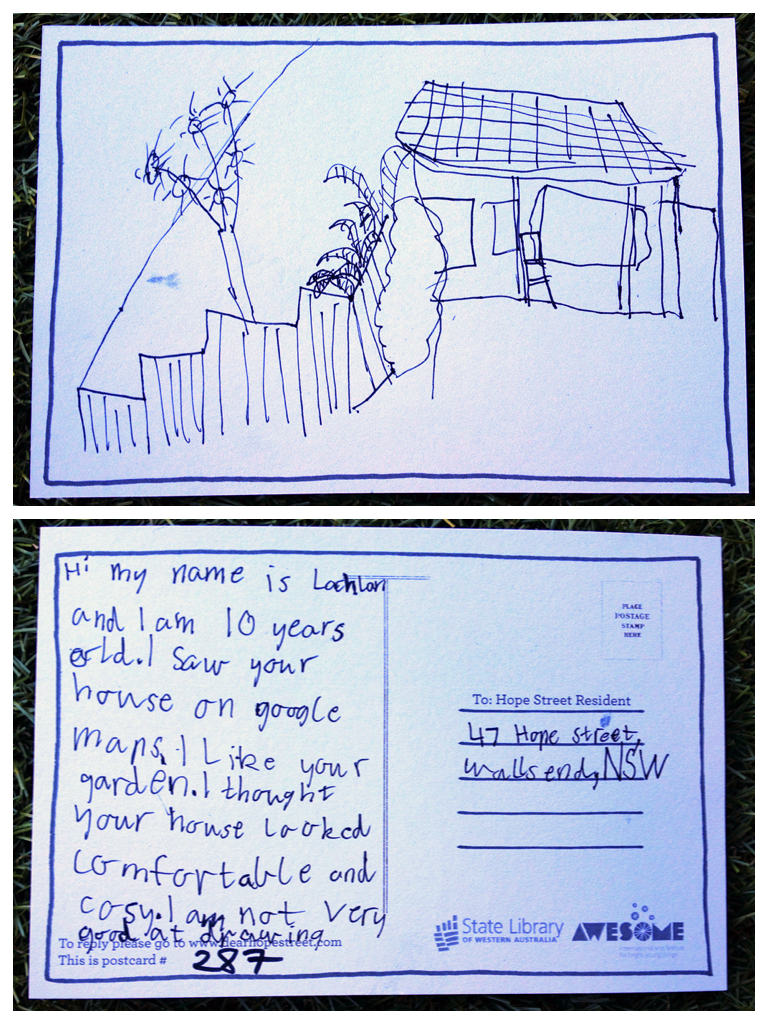 Hi my name is Lachlan
and I am 10 years
old. I saw your
house on google
maps. I Like your
garden. I thought
your house looked
comfortable and
cosy. I am not very
good at drawing
To reply please go to www.dearhopestreet.com
This is postcard # 287
PLACE
POSTAGE
STAMP
HERE
To: Hope Street Resident
47 Hope street,
wallsend, NSW
State Library
OF WESTERN AUSTRALIA
AWESOME